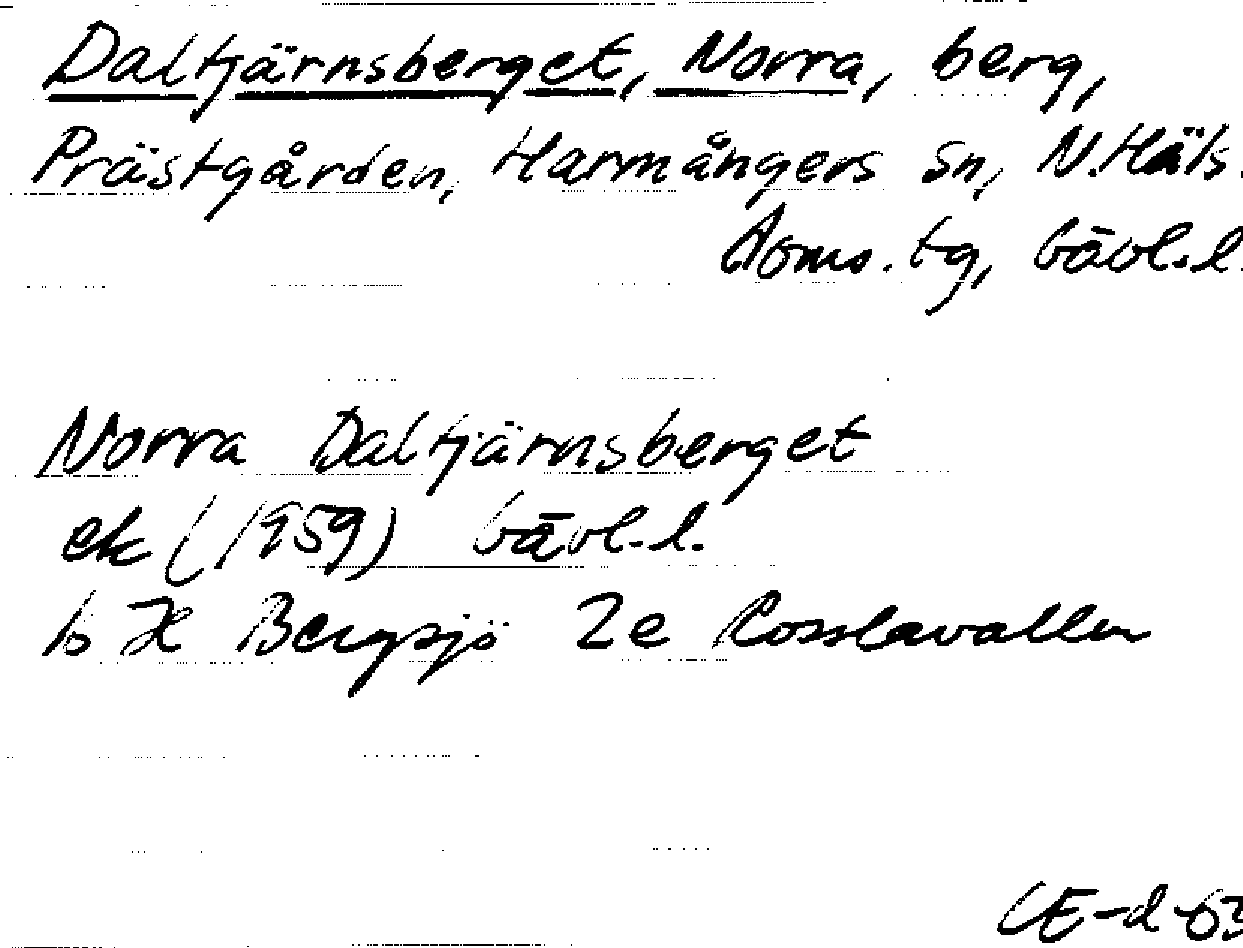 Daltjärnsberget, Norra, berg,
Prästgården, Harmångers sn, N.Häls.
doms. tg, Gävl.l.
Norra Daltjärnsberget
ek (1959) Gävl.l.
16 H Bergsjö 2e Rosslavallen
CE-d-63